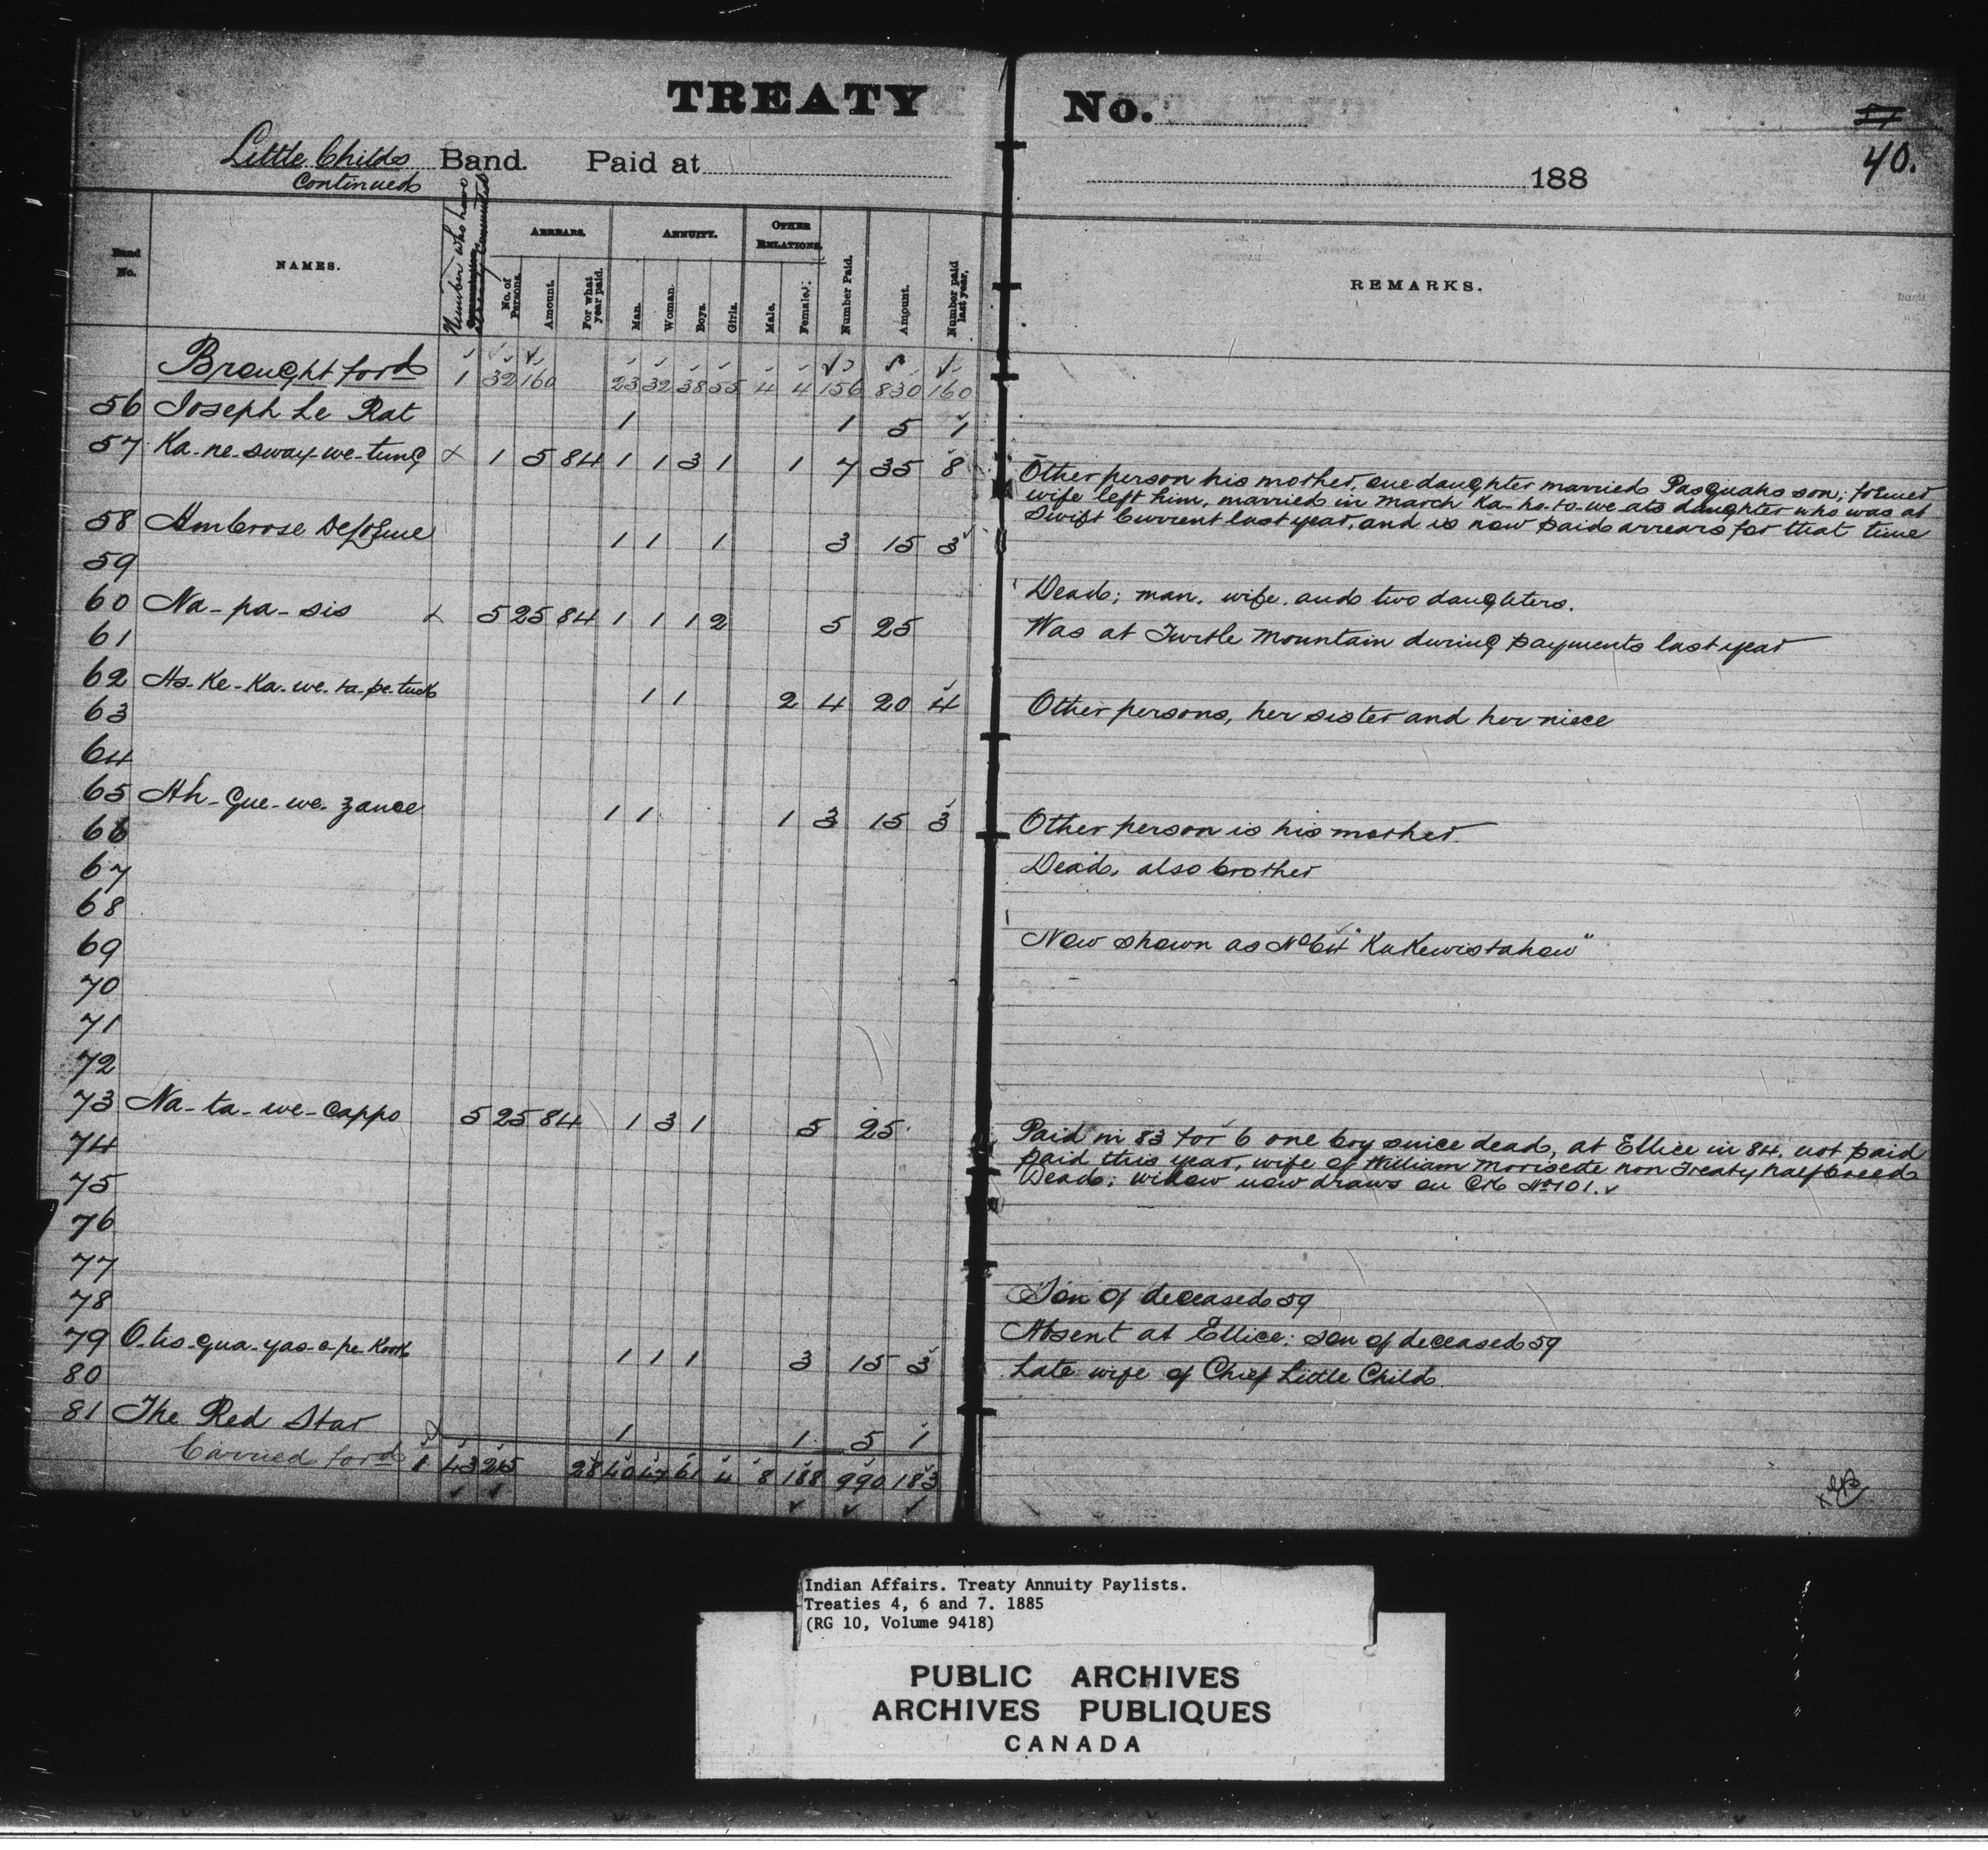 TREATY No.
40.
Little Childs Band. Paid at 188
Continued
Band No. NAMES. Number who have Commuted ARREARS. No. of Persons. Amount. For what year paid. ANNUITY. Man. Woman. Boys. Girls. OTHER RELATIONS. Male. Female. Number Paid. Amount. Number paid last year. REMARKS.
Brought ford 1 32 160 23 32 38 55 4 4 156 830 160
56 Joseph Le Rat 1 1 5 1
57 Ka-ne-sway-we-tung x 1 5 84 1 1 3 1 1 7 35 8
Other person his mother, one daughter married Pasquahs son; former
wife left him, married in March Ka-ho-to-we-ats daughter who was at
Swift Current last year, and is now paid arrears for that time
58 Ambrose 1 1 1 3 15 3
59
Dead; man, wife, and two daughters.
60 Na-pa-sis x 5 25 84 1 1 1 2 5 25
Was at Turtle Mountain during payments last year
61
62 As-Ke-Ka-we-ta-pe-tuck 1 1 2 4 20 4
Other persons, her sister and her niece
63
64
65 Ah-Gue-we-zance 1 1 1 3 15 3
Other person is his mother.
66
Dead, also brother
67
68
Now shown as No 64 "KuKewistahaw"
69
70
71
72
73 Na-ta-we-Cappo 5 25 84 1 3 1 5 25
Paid in 83 for 6 one boy since dead, at Ellice in 84. not paid
74
paid this year, wife of William Morisette non Treaty halfbreed
Dead; widow now draws on No 101.
75
76
77
78
Son of deceased 59
79 O-tis-qua-yas-a-pe-Kook 1 1 1 3 15 3
Absent at Ellice: son of deceased 59
80
Late wife of Chief Little Child
81 The Red Star 1 1 5 1
Carried ford 1 43 215 28 40 47 61 4 8 188 990 183
Indian Affairs. Treaty Annuity Paylists.
Treaties 4, 6 and 7. 1885
(RG 10, Volume 9418)
PUBLIC ARCHIVES
ARCHIVES PUBLIQUES
CANADA